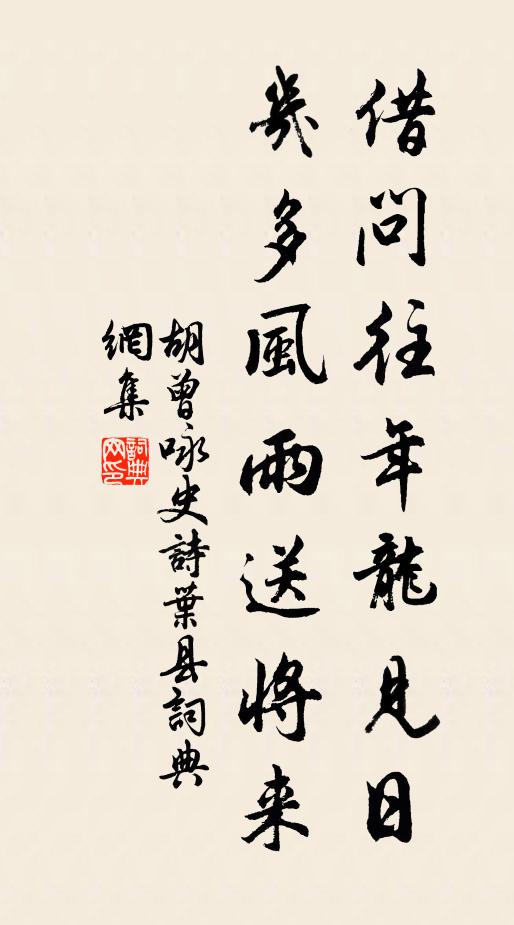 借問往年龍見日
幾多風雨送將来
胡曾咏史詩葉县詞典
網集
詞典网印